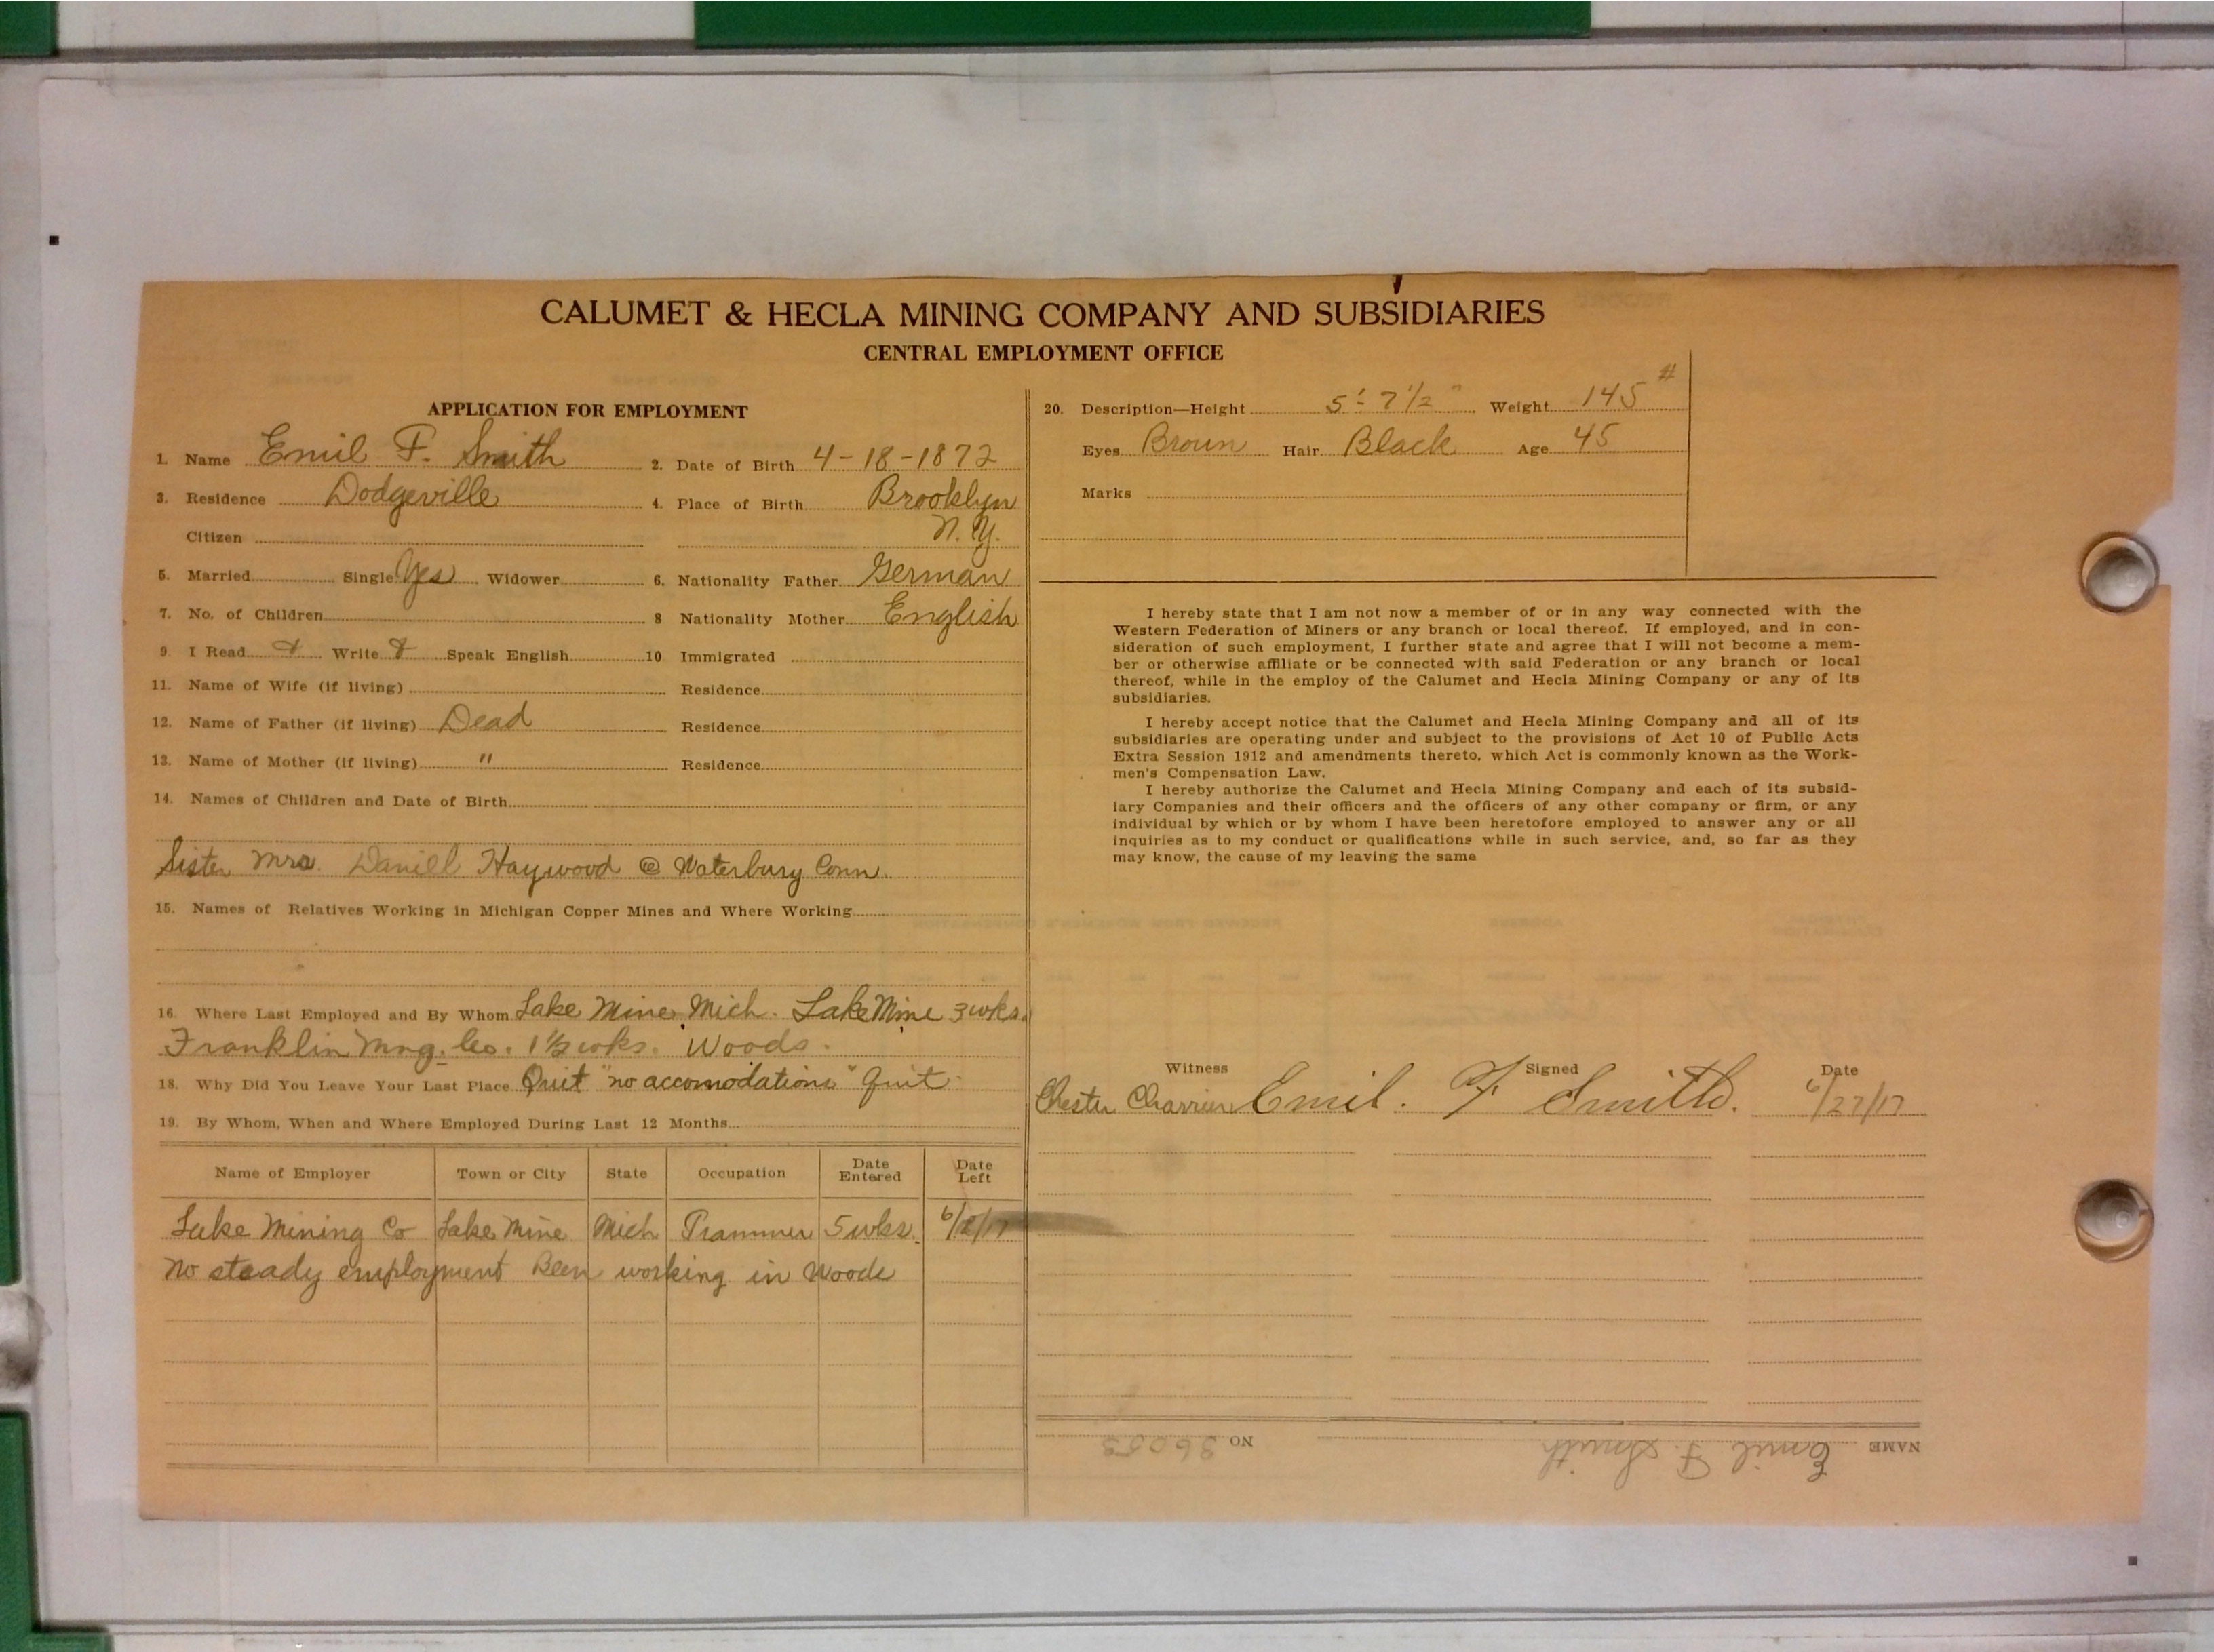 CALUMET & HECLA MINING COMPANY AND SUBSIDIARIES
CENTRAL EMPLOYMENT OFFICE
APPLICATION FOR EMPLOYMENT
1. Name Emil F. Smith 2. Date of Birth 4-18-1872
3. Residence Dodgeville 4. Place of Birth Brooklyn
Citizen N.Y.
5. Married Single Yes Widower 6. Nationality Father German
7. No. of Children 8 Nationality Mother English
9. I Read & Write & Speak English 10 Immigrated
11. Name of Wife (if living) Residence
12. Name of Father (if living) Dead Residence
13. Name of Mother (if living) " Residence
14. Names of Children and Date of Birth
Sister Mrs. Daniel Haywood @ Waterbury Conn.
15. Names of Relatives Working in Michigan Copper Mines and Where Working
16. Where Last Employed and By Whom Lake Mine, Mich. Lake Mine 3 wks.
Franklin Mng. Co. 1½ wks. Woods.
18. Why Did You Leave Your Last Place Quit "no accomodations" Quit
19. By Whom, When and Where Employed During Last 12 Months
Name of Employer Town or City State Occupation Date Entered Date Left
Lake Mining Co Lake Mine Mich Trammer 5 wks. 6/ /17
No steady employment Been working in Woods
20. Description—Height 5'-7 1/2" Weight 145 #
Eyes Broun Hair Black Age 45
Marks
I hereby state that I am not now a member of or in any way connected with the
Western Federation of Miners or any branch or local thereof. If employed, and in con-
sideration of such employment, I further state and agree that I will not become a mem-
ber or otherwise affiliate or be connected with said Federation or any branch or local
thereof, while in the employ of the Calumet and Hecla Mining Company or any of its
subsidiaries.
I hereby accept notice that the Calumet and Hecla Mining Company and all of its
subsidiaries are operating under and subject to the provisions of Act 10 of Public Acts
Extra Session 1912 and amendments thereto, which Act is commonly known as the Work-
men's Compensation Law.
I hereby authorize the Calumet and Hecla Mining Company and each of its subsid-
iary Companies and their officers and the officers of any other company or firm, or any
individual by which or by whom I have been heretofore employed to answer any or all
inquiries as to my conduct or qualifications while in such service, and, so far as they
may know, the cause of my leaving the same
Witness Signed Date
Chester Emil. F Smith. 6/27/17
NAME Emil F. Smith NO 36053